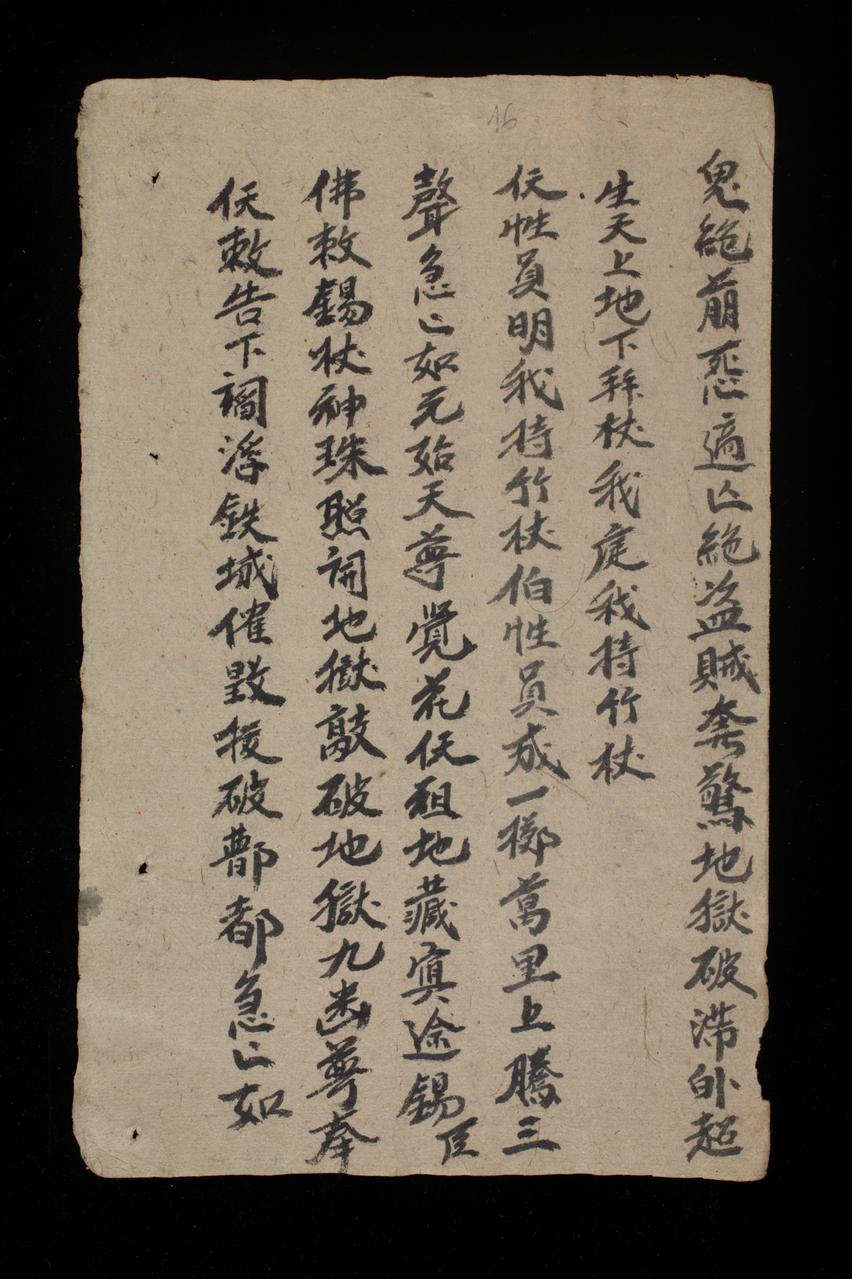 鬼絶崩惡適亡絶盜賊奔驚地獄破滞卧超
生天上地下拜杖我庭我持竹杖
仸性員明我持竹杖伯性員成一擲萬里上騰三
聲急〻如元始天尊覺花仸祖地藏寞途錫臣
佛敕錫杖神珠照開地獄敲破地獄九幽尊奉
仸敕告下閻浮鉄城催毀援破酆都急〻如
16